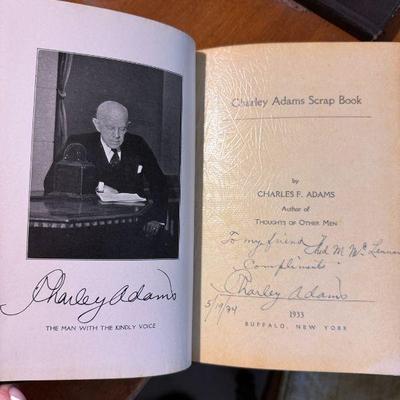 Charley Adams
THE MAN WITH THE KINDLY VOICE
Charley Adams Scrap Book
by
CHARLES F. ADAMS
Author of
THOUGHTS OF OTHER MEN
To my friend M. McLennan
Compliments
Charley Adams
5/19/34
1933
BUFFALO, NEW YORK